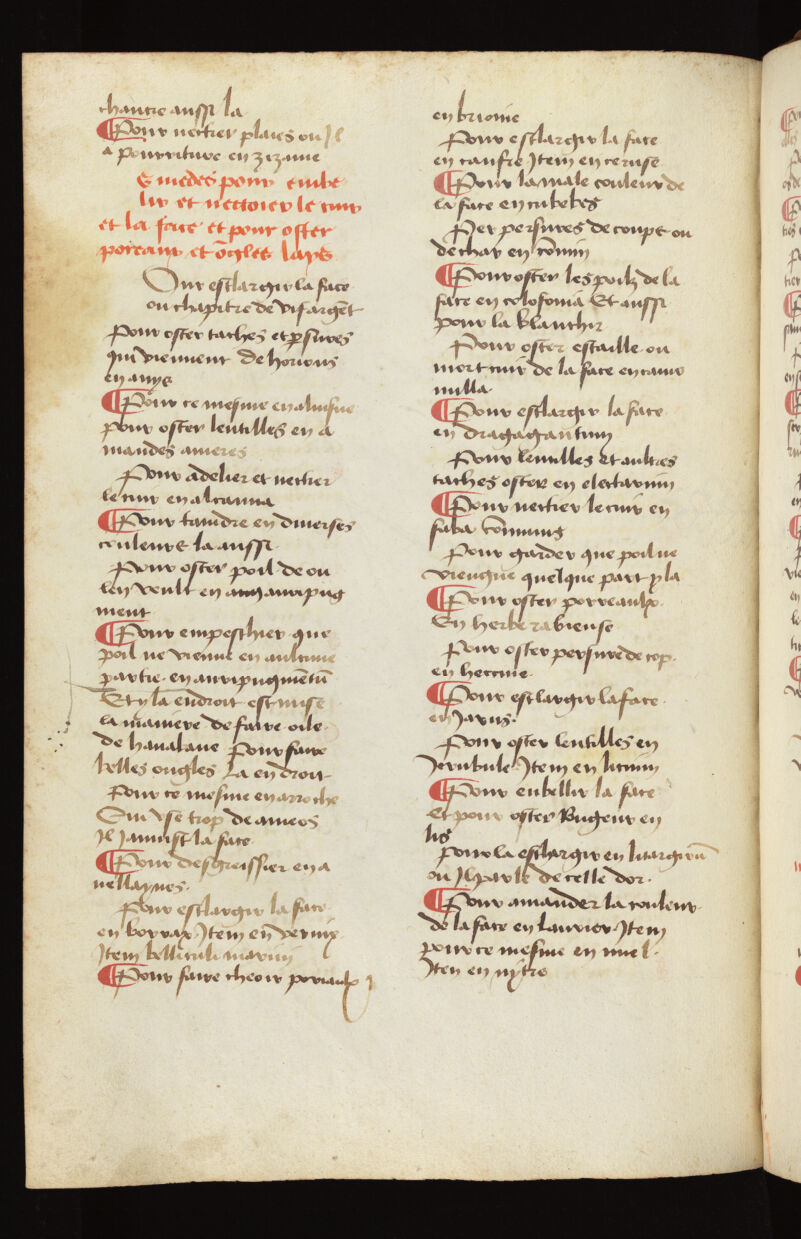 chancre aussi la
Pour nectier plaies ou Il
a pourriture en zizanie
Emedes pour embe
lir et nectoier le cuir
et la face et pour oster
poreaux et ongles lays
Our esclargir la face
ou chapitre de vif argẽt
Pour oster taches et psures
qui viennent de horions
en anys
Pour ce mesme en aluisne
pour oster lentilles en a
mandes ameres
Pour adelier et nectier
le cuir en alcanna
Pour taindre en diuerses
couleurs la aussi
Pour oster poil de ou
len veult en auripug
ment
Pour empeschier que
poil ne vienne en aulcune
partie en auripugmẽtũ
Et yla endroit est mise
la maniere de faire oile
de haualane Pour faire
belles ongles La en droit
Pour ce mesme en arroche
Qui vse trop de ameos
Il Jaunist la face
Pour desgreissier en a
uellaynes
Pour esclargir la face
en borrax Item en vernix
Item bellirili marini
Pour faire cheoir poriaulx
en brionie
Pour esclargir la face
en canfre Item en ceruse
Pour la male couleur de
la face en cubebes
Per persures de coups ou
de char en cõmin
Pour oster les poilz de la
face en colofonia Et aussi
pour la blanchir
Pour oster escaille ou
mort cuir de la face en camo
milla
Pour esclargir la face
en dragagantum
Pour lentilles et aultres
taches oster en electarium
Pour nectier le cuir en
faba cõmunis
Pour garder que poil ne
viengne quelque part yla
Pour oster porreaulx
En herbe rabieuse
Pour oster persure de cop
en hermie
Pour esclargir la face
en Jarus
Pour oster lentilles en
Item en licium
Pour enbellir la face
Et pour oster Rugeur en
lis
Pour la esclargir en litargirũ
ou Il parle de celle dor
Pour amander la couleur
de la face en laurier Item
pour ce mesme en miel
Item en nytre